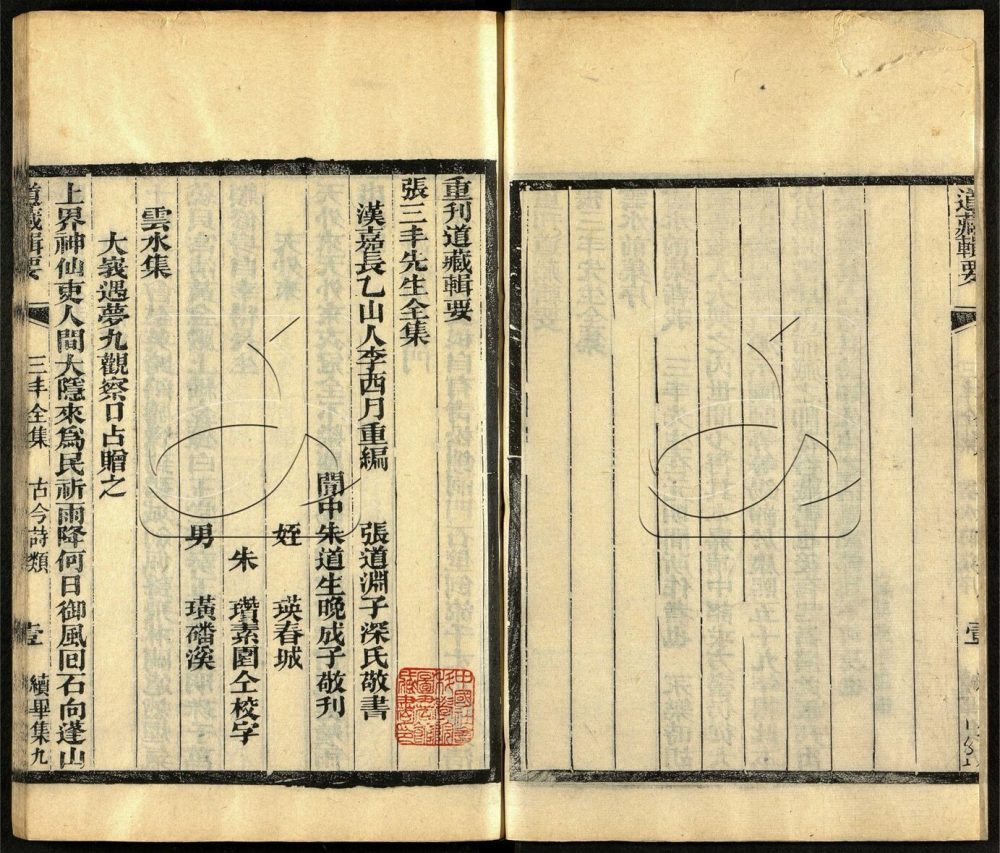 道藏輯要
壹
重刊道藏輯要
張三丰先生全集
漢嘉長乙山人李西月重編
張道淵子深氏敬書
閬中朱道生晚成子敬刊
姪 瑛春城
朱 瓚素園仝校字
男 璜磻溪
雲水集
大峩遇夢九觀察口占贈之
上界神仙吏人間大隱來爲民祈雨降何日御風回石向蓬山
道藏輯要
三丰全集 古今詩類 壹 續畢集九